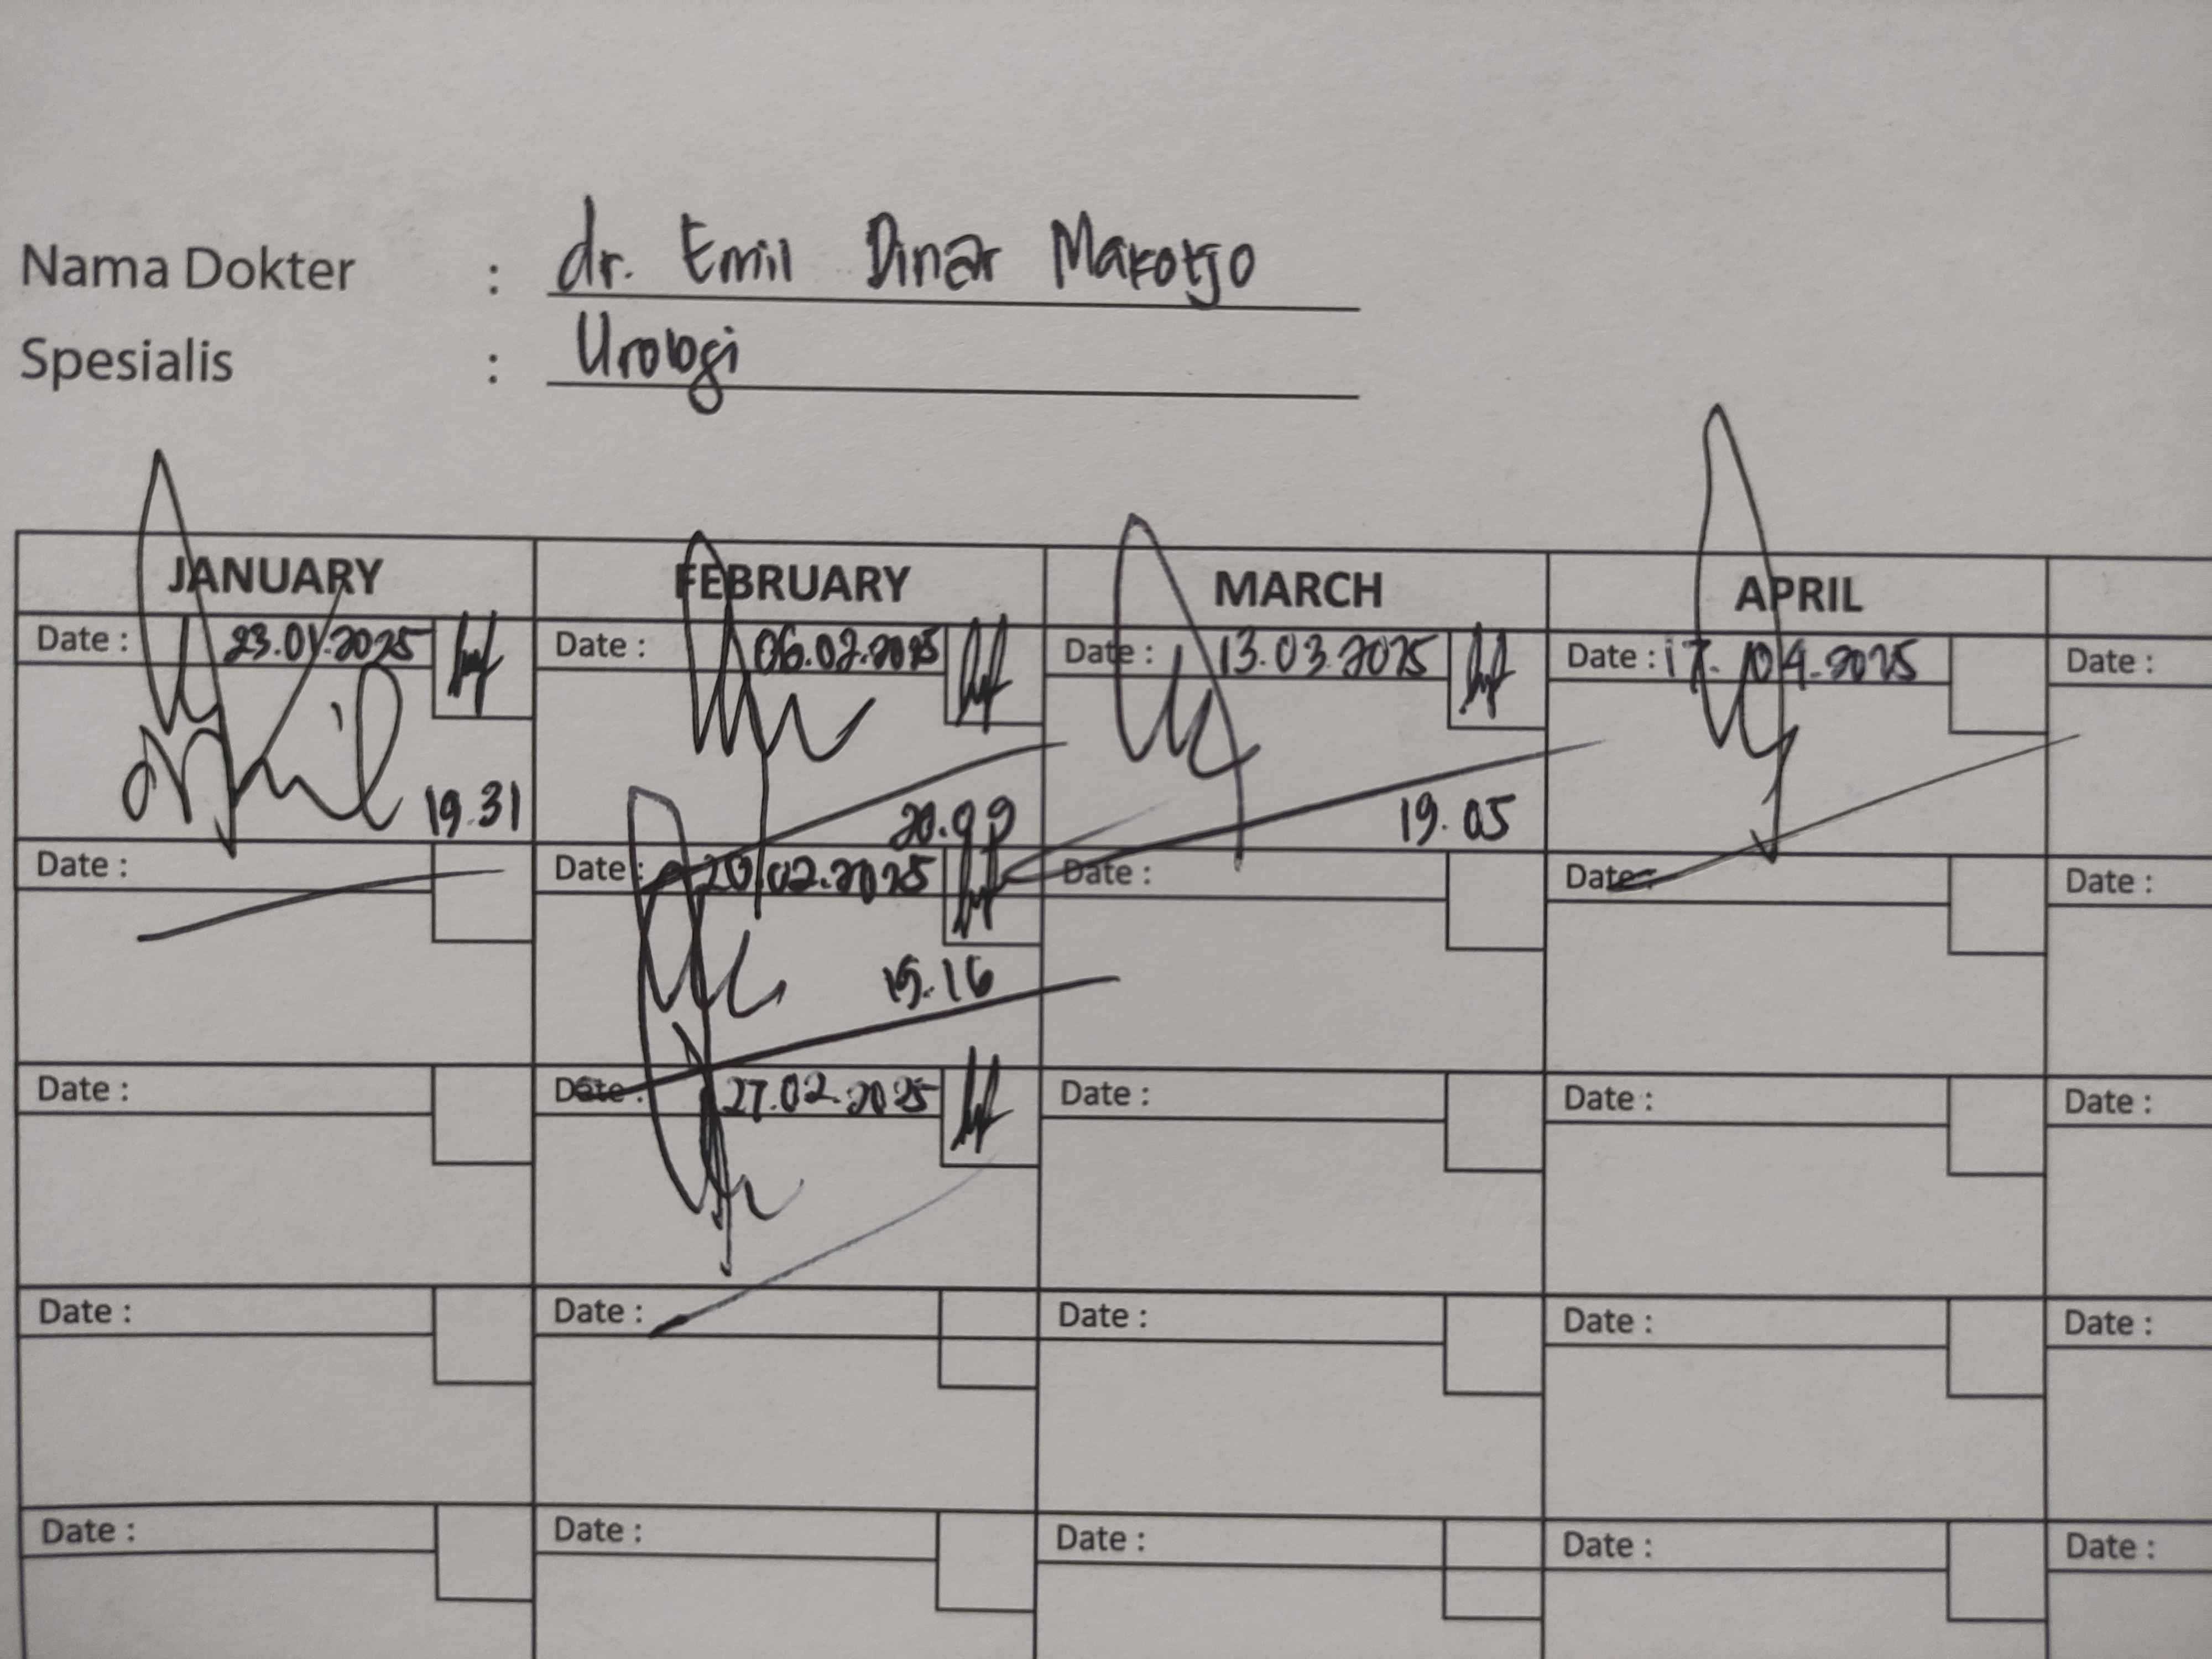 Nama Dokter : dr. Emil Dinar Makotjo
Spesialis : Urologi
JANUARY FEBRUARY MARCH APRIL
Date : 23.01.2025 Date : 06.02.2025 Date : 13.03.2025 Date : 17.04.2025 Date :
19.31 19.05
Date : Date : 20.02.2025 Date : Date : Date :
19.16
Date : Date : 27.02.2025 Date : Date : Date :
Date : Date : Date : Date : Date :
Date : Date : Date : Date : Date :